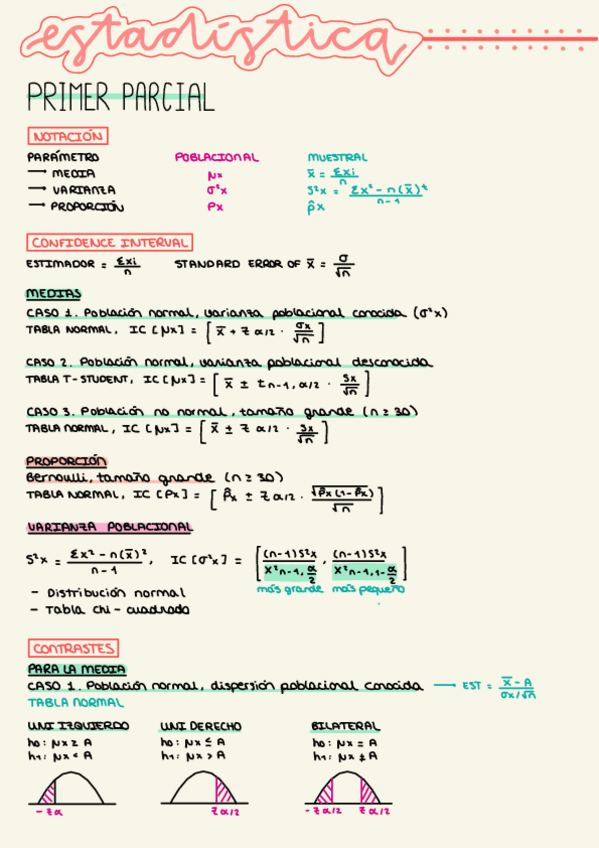 estadística
PRIMER PARCIAL
NOTACIÓN
PARÁMETRO POBLACIONAL MUESTRAL
→ MEDIA μx x̄ = Σxi/n
→ VARIANZA σ²x S²x = Σx² - n(x̄)²/n-1
→ PROPORCIÓN Px p̂x
CONFIDENCE INTERVAL
ESTIMADOR = Σxi/n STANDARD ERROR OF x̄ = σ/√n
MEDIAS
CASO 1. Población normal, varianza poblacional conocida (σ²x)
TABLA NORMAL, IC [μx] = [x̄ + z α/2 · σx/√n]
CASO 2. Población normal, varianza poblacional desconocida
TABLA T-STUDENT, IC [μx] = [x̄ ± t n-1, α/2 · Sx/√n]
CASO 3. Población no normal, tamaño grande (n ≥ 30)
TABLA NORMAL, IC [μx] = [x̄ ± z α/2 · Sx/√n]
PROPORCIÓN
Bernoulli, tamaño grande (n ≥ 30)
TABLA NORMAL, IC [Px] = [p̂x ± z α/2 · √p̂x(1-p̂x)/√n]
VARIANZA POBLACIONAL
S²x = Σx² - n(x̄)²/n-1, IC [σ²x] = [(n-1)S²x/X²n-1, α/2, (n-1)S²x/X²n-1, 1-α/2]
más grande más pequeño
- Distribución normal
- Tabla chi-cuadrado
CONTRASTES
PARA LA MEDIA
CASO 1. Población normal, dispersión poblacional conocida → EST = x̄ - A/σx/√n
TABLA NORMAL
UNI IZQUIERDO UNI DERECHO BILATERAL
h0: μx ≥ A h0: μx ≤ A h0: μx = A
h1: μx < A h1: μx > A h1: μx ≠ A
-zα zα/2 -zα/2 zα/2